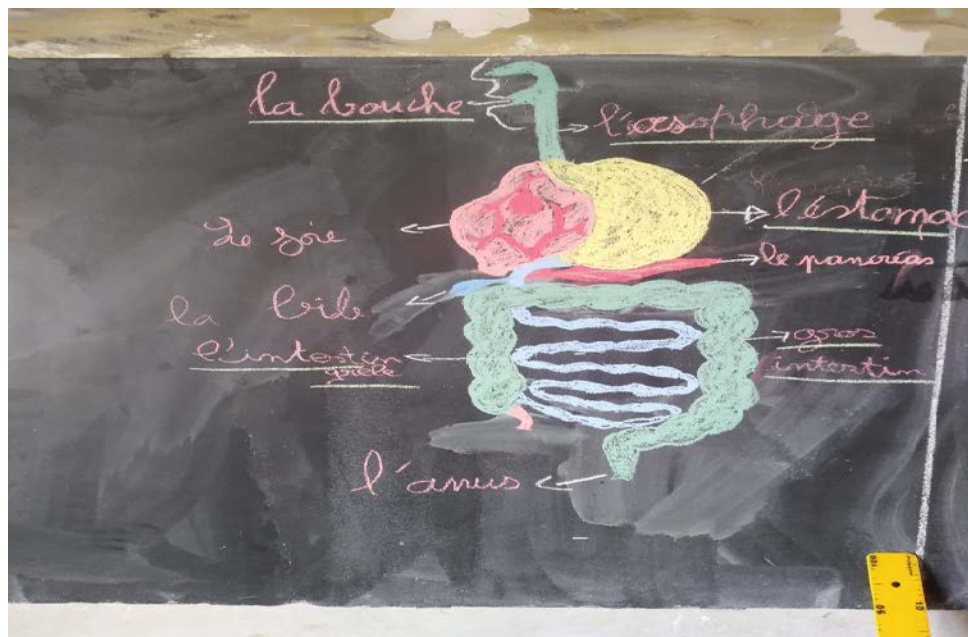 la bouche
l'œsophage
l'éstomac
le foie
le pancréas
la bile
l'intestin
grêle
gros
l'intestin
l'anus